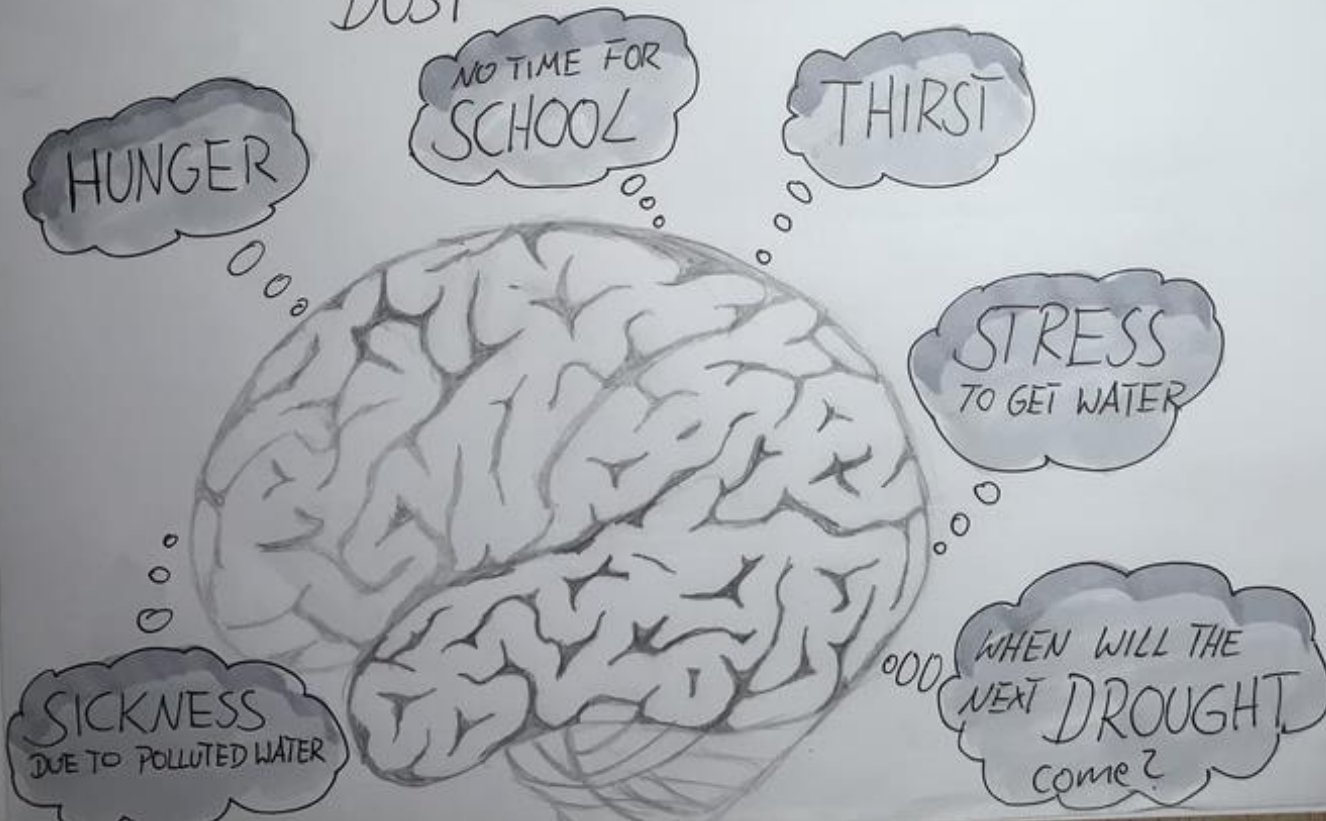 DUST
NO TIME FOR
SCHOOL
THIRST
HUNGER
STRESS
TO GET WATER
WHEN WILL THE
NEXT DROUGHT
come?
SICKNESS
DUE TO POLLUTED WATER